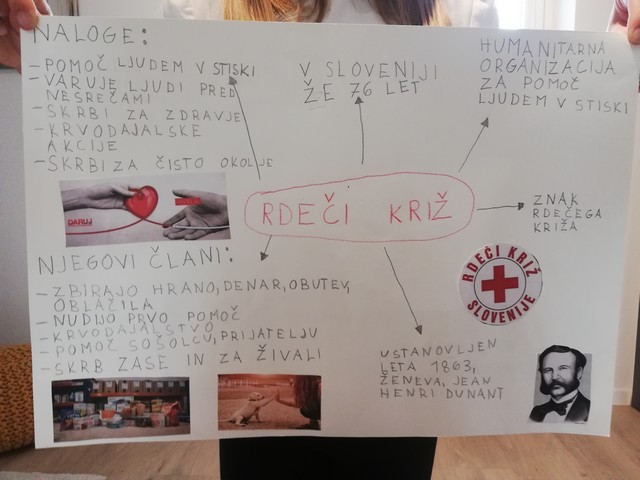 NALOGE:
- POMOČ LJUDEM V STISKI
- VARUJE LJUDI PRED
NESREČAMI
- SKRBI ZA ZDRAVJE
- KRVODAJALSKE
AKCIJE
- SKRBI ZA ČISTO OKOLJE
V SLOVENIJI
ŽE 76 LET
HUMANITARNA
ORGANIZACIJA
ZA POMOČ
LJUDEM V STISKI
DARUJ
RDEČI KRIŽ
ZNAK
RDEČEGA
KRIŽA
RDEČI KRIŽ
SLOVENIJE
NJEGOVI ČLANI:
- ZBIRAJO HRANO, DENAR, OBUTEV,
OBLAČILA
- NUDIJO PRVO POMOČ
- KRVODAJALSTVO
- POMOČ SOŠOLCU, PRIJATELJU
- SKRB ZASE IN ZA ŽIVALI
USTANOVLJEN
LETA 1863,
ŽENEVA, JEAN
HENRI DUNANT